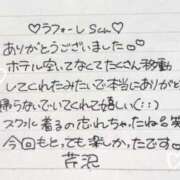 ♡ラフォーレ Scん♡
ありがとうございました
ホテル空いてなくてたくさん移動
してくれたみたいで本当にありがと
帰らないでいてくれて嬉しい(::)
スクル着るの忘れちゃったね笑
今回もとっても楽しかったです♡
芹沢